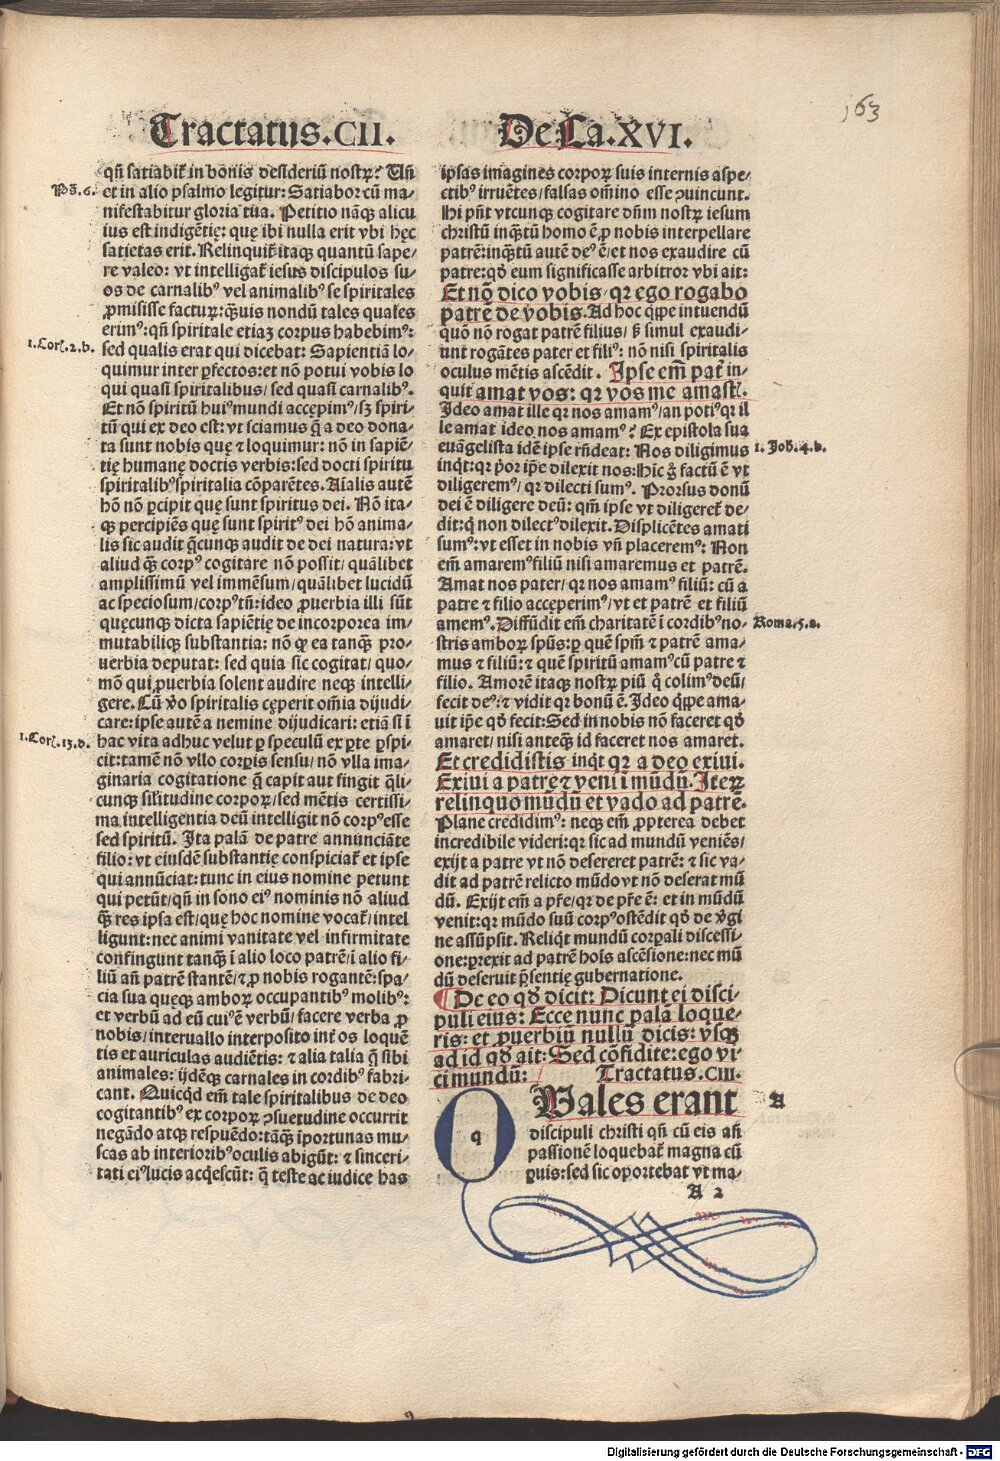 163
Tractatus.CII. De La.XVI.
qñ satiabit̃ in bonis desideriũ nostrꝝ? Uñ
Ps̃.6. et in alio psalmo legitur: Satiabor cũ ma-
nifestabitur gloria tua. Petitio nãqꝫ alicu
ius est indigẽtię: quę ibi nulla erit vbi hęc
satietas erit. Relinquit̃ itaqꝫ quantũ sape/
re valeo: vt intelligat̃ iesus discipulos su/
os de carnalibꝰ vel animalibꝰ se spiritales
ꝓmisisse facturꝝ: q̃uis nondũ tales quales
erimꝰ: qñ spiritale etiaʒ corpus habebimꝰ:
1.Cor.2.b. sed qualis erat qui dicebat: Sapientiã lo/
quimur inter ꝑfectos: et nõ potui vobis lo
qui quasi spiritalibus/ sed quasi carnalibꝰ.
Et nõ spiritũ huiꝰ mundi accępimꝰ/ sʒ spiri/
tũ qui ex deo est: vt sciamus q̃ a deo dona/
ta sunt nobis quę ⁊ loquimur: nõ in sapiẽ/
tię humanę doctis verbis: sed docti spiritu
spiritalibꝰ spiritalia cõparẽtes. Aĩalis autẽ
hõ nõ ꝑcipit que sunt spiritus dei. Nõ ita/
qꝫ percipiẽs quę sunt spiritꝰ dei hõ anima/
lis sic audit q̃cunqꝫ audit de dei natura: vt
aliud q̃ʒ corpꝰ cogitare nõ possit/ quãlibet
amplissimũ vel immẽsum/ quãlibet lucidũ
ac speciosum/ corpꝰ tñ: ideo ꝓuerbia illi sũt
quęcunqꝫ dicta sapiẽtię de incorporea im/
mutabiliqꝫ substantia: nõ ꝙ ea tanqꝫ pro/
uerbia deputat: sed quia sic cogitat/ quo/
mõ qui ꝓuerbia solent audire neqꝫ intelli/
gere. Cũ v̊o spiritalis cęperit om̃ia dijudi/
care: ipse autẽ a nemine dijudicari: etiã si ĩ
1.Cor.13.d. hac vita adhuc velut ꝑ speculũ ex ꝑte ꝑspi/
cit: tamẽ nõ vllo corꝑis sensu/ nõ vlla ima/
ginaria cogitatione q̃ capit aut fingit q̃li/
cunqꝫ sil̃itudine corporꝝ/ sed mẽtis certissi/
ma intelligentia deũ intelligit nõ corpꝰ esse
sed spiritũ. Ita palã de patre annunciãte
filio: vt eiusdẽ substantię conspiciat̃ et ipse
qui annũciat: tunc in eius nomine petunt
qui petũt/ qñ in sono eiꝰ nominis nõ aliud
q̃ʒ res ipsa est/ quę hoc nomine vocat̃/ intel
ligunt: nec animi vanitate vel infirmitate
confingunt tanqꝫ ĩ alio loco patrẽ/ ĩ alio fi/
liũ añ patrẽ stantẽ/ ⁊ ꝓ nobis rogantẽ: spa/
cia sua quęqꝫ amborꝝ occupantibꝰ molibꝰ:
et verbũ ad eũ cuiꝰ ẽ verbũ/ facere verba ꝓ
nobis/ interuallo interposito inť os loquẽ
tis et auriculas audiẽtis: ⁊ alia talia q̃ sibi
animales: ijdẽqꝫ carnales in cordibꝰ fabri/
cant. Quicq̃d em̃ tale spiritalibus de deo
cogitantibꝰ ex corporꝝ ꝯsuetudine occurrit
negãdo atqꝫ respuẽdo: tãqꝫ ĩportunas mu/
scas ab interioribꝰ oculis abigũt: ⁊ sinceri/
tati eiꝰ lucis acq̃escũt: q̃ teste ac iudice has
ipsas imagines corporꝝ suis internis aspe/
ctibꝰ irruẽtes/ falsas om̃ino esse ꝯuincunt.
Hi pñt vtcunqꝫ cogitare dñm nostrꝝ iesum
christũ inq̃tũ homo ẽ/ ꝓ nobis interpellare
patrẽ: inq̃tũ autẽ deꝰ ẽ/ et nos exaudire cũ
patre: qd̃ eum significasse arbitror vbi ait:
Et nõ dico vobis/ qꝛ ego rogabo
patrẽ de vobis. Ad hoc q̃ppe intuendũ
quõ nõ rogat patrẽ filius/ ß simul exaudi/
unt rogãtes pater et filiꝰ: nõ nisi spiritalis
oculus mẽtis ascẽdit. Ipse em̃ pat̃ in-
quit amat vos: qꝛ vos me amastꝭ.
Ideo amat ille qꝛ nos amamꝰ/ an potiꝰ qꝛ il
le amat ideo nos amamꝰ? Ex epistola sua
euãgelista idẽ ipse rñdeat: Nos diligimus 1. Joh.4.b.
inq̃t: qꝛ p̃or ip̃e dilexit nos: hic g̊ factũ ẽ vt
diligeremꝰ/ qꝛ dilecti sumꝰ. Prorsus donũ
dei ẽ diligere deũ: qm̃ ipse vt diligeret̃ de/
dit: q̃ non dilectꝰ dilexit. Displicẽtes amati
sumꝰ: vt esset in nobis vñ placeremꝰ: Non
em̃ amaremꝰ filiũ nisi amaremus et patrẽ.
Amat nos pater/ qꝛ nos amamꝰ filiũ: cũ a
patre ⁊ filio accęperimꝰ/ vt et patrẽ et filiũ
amemꝰ. Diffũdit em̃ charitatẽ ĩ cordibꝰ no- Roma.5.a.
stris amborꝝ spũs: ꝑ quẽ spm̃ ⁊ patrẽ ama/
mus ⁊ filiũ: ⁊ quẽ spiritũ amamꝰ cũ patre ⁊
filio. Amorẽ itaqꝫ nostrꝝ piũ q̃ colimꝰ deũ/
fecit deꝰ: ⁊ vidit qꝛ bonũ ẽ. Ideo q̃ppe ama/
uit ip̃e qd̃ fecit: Sed in nobis nõ faceret qd̃
amaret/ nisi anteqꝫ id faceret nos amaret.
Et credidistis inq̃t qꝛ a deo exiui.
Exiui a patre ⁊ veni ĩ mũdũ. Iterꝝ
relinquo mũdũ et vado ad patrẽ.
Plane credidimꝰ: neqꝫ em̃ ꝓpterea debet
incredibile videri: qꝛ sic ad mundũ veniẽs/
exijt a patre vt nõ desereret patrẽ: ⁊ sic va/
dit ad patrẽ relicto mũdo vt nõ deserat mũ
dũ. Exijt em̃ a pr̃e/ qꝛ de pr̃e ẽ: et in mũdũ
venit: qꝛ mũdo suũ corpꝰ ostẽdit qd̃ de v̊gi
ne assũpsit. Reliq̃t mundũ corꝑali discessi/
one: ꝑrexit ad patrẽ hoĩs ascẽsione: nec mũ
dũ deseruit p̃sentię gubernatione.
¶ De eo qd̃ dicit: Dicunt ei disci-
puli eius: Ecce nunc palã loque-
ris: et ꝓuerbiũ nullũ dicis: vsqꝫ
ad id qd̃ ait: Sed cõfidite: ego vi-
ci mundũ: Tractatus.CIII.
q Uales erant A
discipuli christi qñ cũ eis añ
passionẽ loquebat̃ magna cũ
ꝑuis: sed sic oportebat vt ma-
A 2
Digitalisierung gefördert durch die Deutsche Forschungsgemeinschaft - DFG